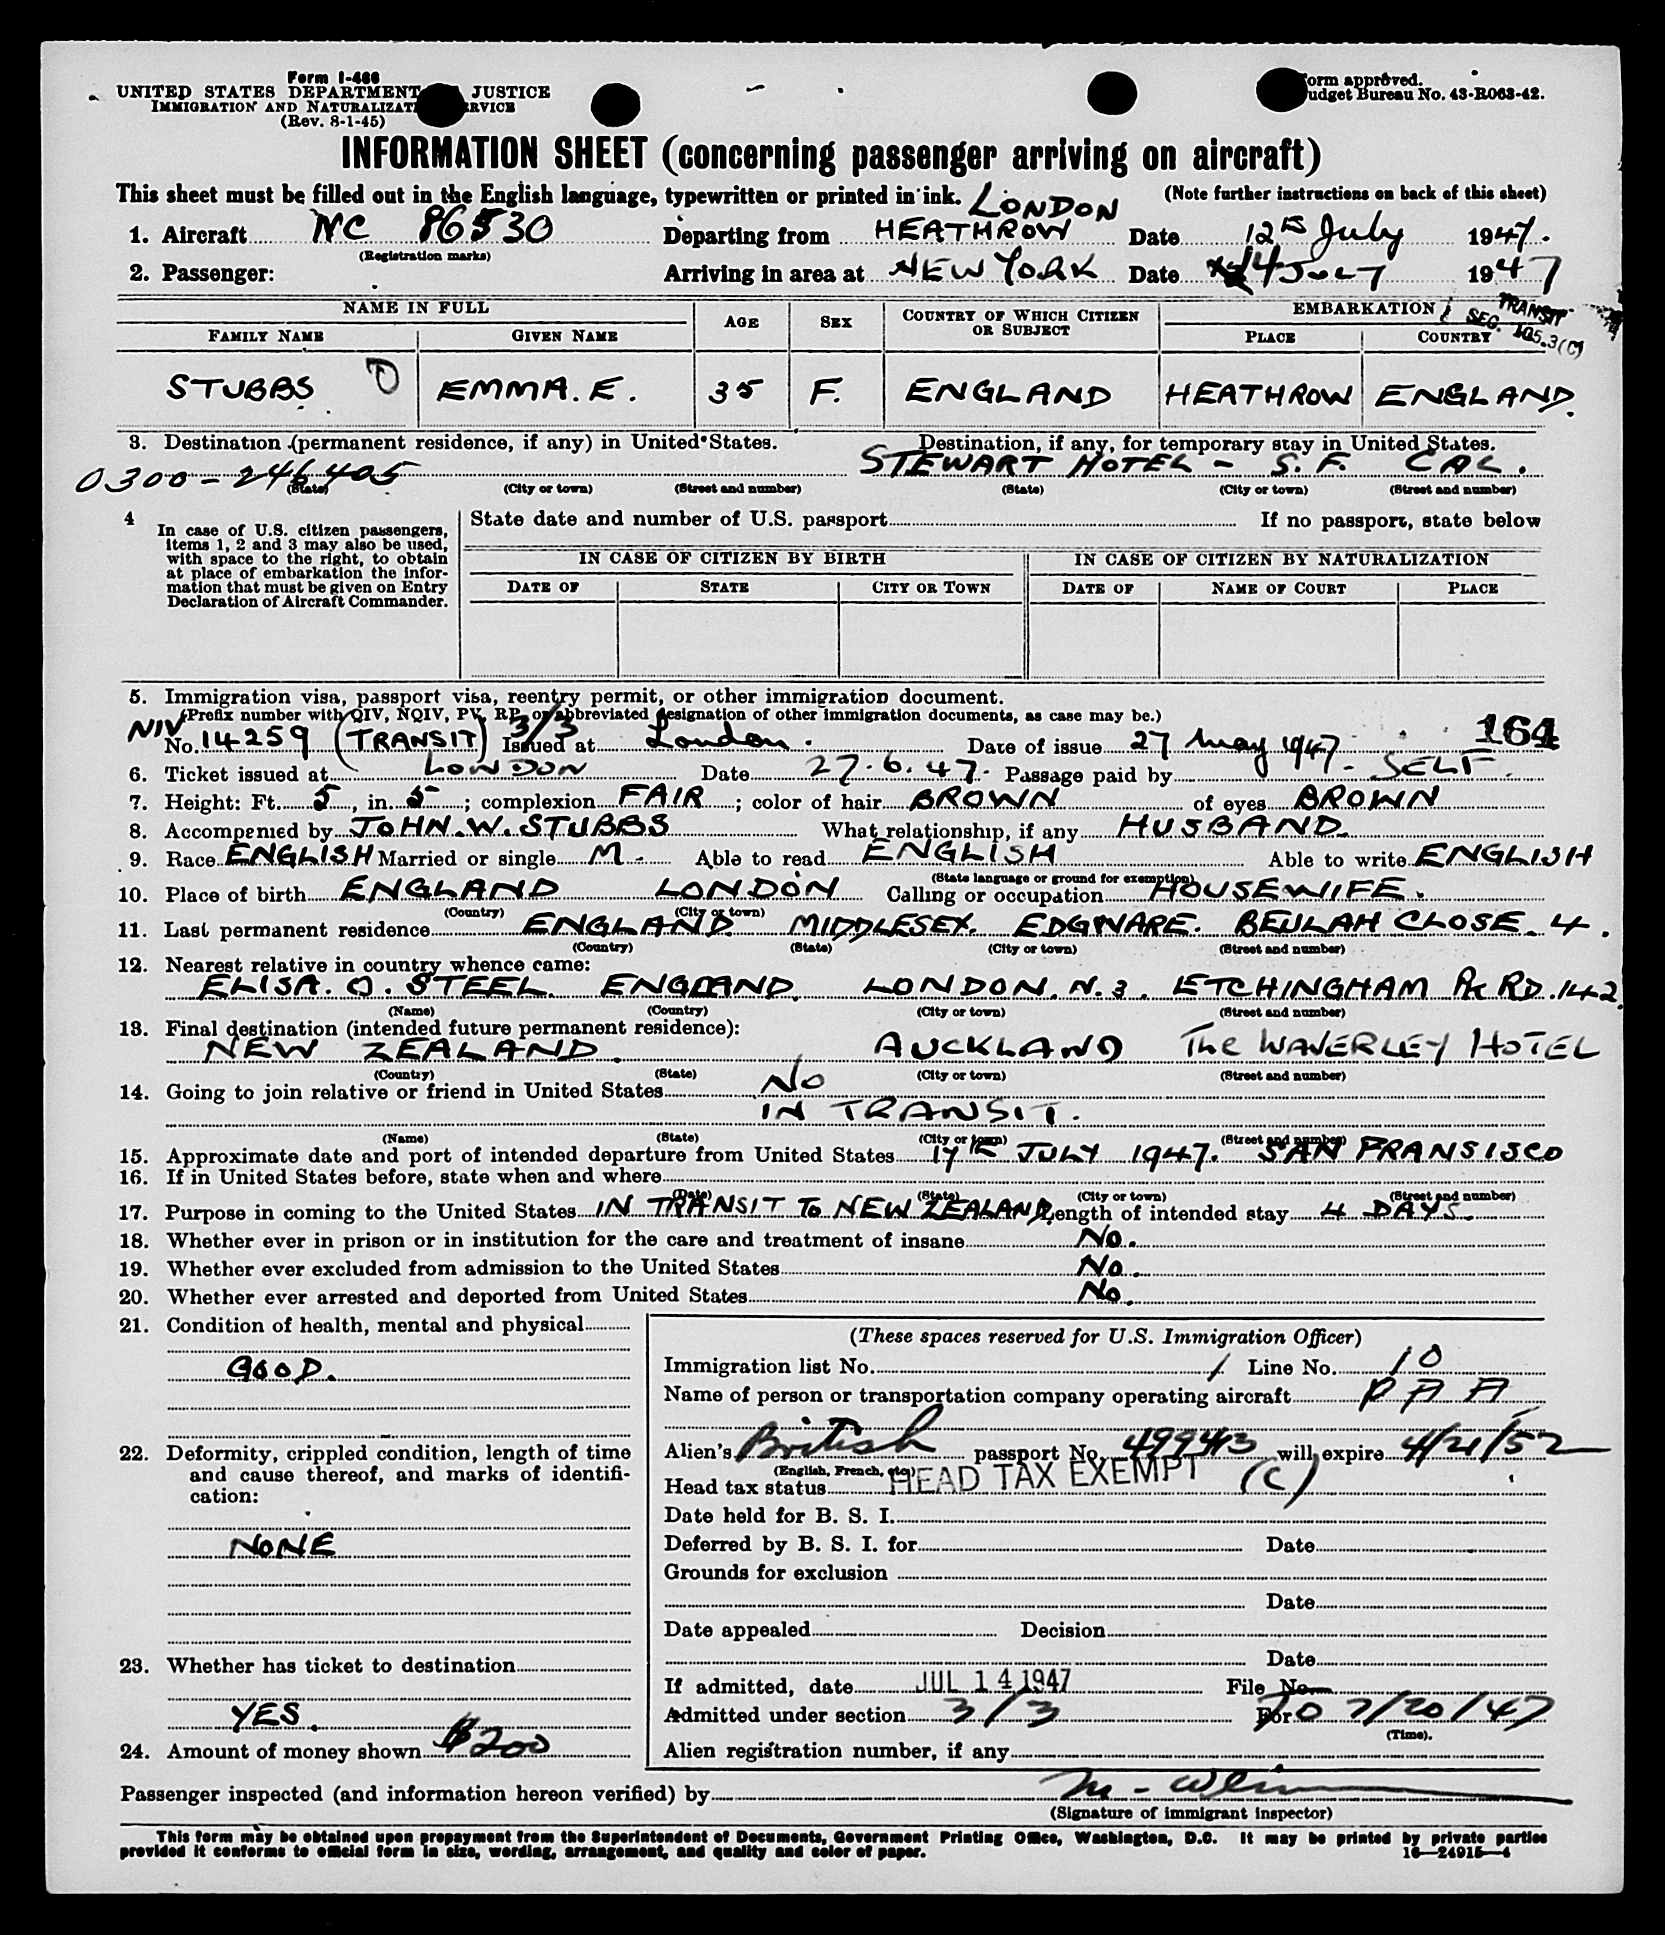 Form I-466
UNITED STATES DEPARTMENT JUSTICE
IMMIGRATION AND NATURALIZAT RVICE
(Rev. 8-1-45)
orm approved.
udget Bureau No. 43-R063-42.
INFORMATION SHEET (concerning passenger arriving on aircraft)
This sheet must be filled out in the English language, typewritten or printed in ink. LONDON (Note further instructions on back of this sheet)
1. Aircraft NC 86530 Departing from HEATHROW Date 12th July 1947.
(Registration marks)
2. Passenger: Arriving in area at NEW YORK Date 14 JULY 1947
NAME IN FULL AGE SEX COUNTRY OF WHICH CITIZEN OR SUBJECT EMBARKATION TRANSIT
SEC. 105.3(C)
FAMILY NAME GIVEN NAME PLACE COUNTRY
STUBBS EMMA. E. 35 F. ENGLAND HEATHROW ENGLAND.
3. Destination (permanent residence, if any) in United States. Destination, if any, for temporary stay in United States.
0300-246405 STEWART HOTEL - S.F. CAL.
(State) (City or town) (Street and number) (State) (City or town) (Street and number)
4 In case of U.S. citizen passengers, items 1, 2 and 3 may also be used, with space to the right, to obtain at place of embarkation the information that must be given on Entry Declaration of Aircraft Commander.
State date and number of U.S. passport If no passport, state below
IN CASE OF CITIZEN BY BIRTH IN CASE OF CITIZEN BY NATURALIZATION
DATE OF STATE CITY OR TOWN DATE OF NAME OF COURT PLACE
5. Immigration visa, passport visa, reentry permit, or other immigration document.
(Prefix number with QIV, NQIV, PV, RP, or abbreviated designation of other immigration documents, as case may be.)
NIV No. 14259 (TRANSIT) 3/3 Issued at London. Date of issue 27 May 1947. 164
6. Ticket issued at LONDON Date 27.6.47. Passage paid by SELF.
7. Height: Ft. 5, in. 5; complexion FAIR; color of hair BROWN of eyes BROWN
8. Accompanied by JOHN. W. STUBBS What relationship, if any HUSBAND.
9. Race ENGLISH Married or single M. Able to read ENGLISH Able to write ENGLISH
(State language or ground for exemption)
10. Place of birth ENGLAND LONDON Calling or occupation HOUSEWIFE.
(Country) (City or town)
11. Last permanent residence ENGLAND MIDDLESEX. EDGWARE. BEULAH CLOSE. 4.
(Country) (State) (City or town) (Street and number)
12. Nearest relative in country whence came:
ELISA. O. STEEL. ENGLAND. LONDON. N.3. ETCHINGHAM Pk RD. 142.
(Name) (Country) (City or town) (Street and number)
13. Final destination (intended future permanent residence):
NEW ZEALAND. AUCKLAND The WAVERLEY HOTEL
(Country) (State) (City or town) (Street and number)
14. Going to join relative or friend in United States No
IN TRANSIT.
(Name) (State) (City or town) (Street and number)
15. Approximate date and port of intended departure from United States 17th JULY 1947. SAN FRANSISCO
16. If in United States before, state when and where
(Date) (State) (City or town) (Street and number)
17. Purpose in coming to the United States IN TRANSIT TO NEW ZEALAND Length of intended stay 4 DAYS.
18. Whether ever in prison or in institution for the care and treatment of insane No.
19. Whether ever excluded from admission to the United States No.
20. Whether ever arrested and deported from United States No.
21. Condition of health, mental and physical
GOOD.
22. Deformity, crippled condition, length of time and cause thereof, and marks of identification:
NONE
23. Whether has ticket to destination
YES.
24. Amount of money shown $200
(These spaces reserved for U.S. Immigration Officer)
Immigration list No. 1 Line No. 10
Name of person or transportation company operating aircraft PAA
Alien's British passport No. 499413 will expire 4/21/52
(English, French, etc.)
Head tax status HEAD TAX EXEMPT (C)
Date held for B. S. I.
Deferred by B. S. I. for Date
Grounds for exclusion
Date
Date appealed Decision
Date
If admitted, date JUL 14 1947 File No.
Admitted under section 3/3 For to 7/20/47
(Time).
Alien registration number, if any
Passenger inspected (and information hereon verified) by M.
(Signature of immigrant inspector)
This form may be obtained upon prepayment from the Superintendent of Documents, Government Printing Office, Washington, D.C. It may be printed by private parties
provided it conforms to official form in size, wording, arrangement, and quality and color of paper. 16—24915-4